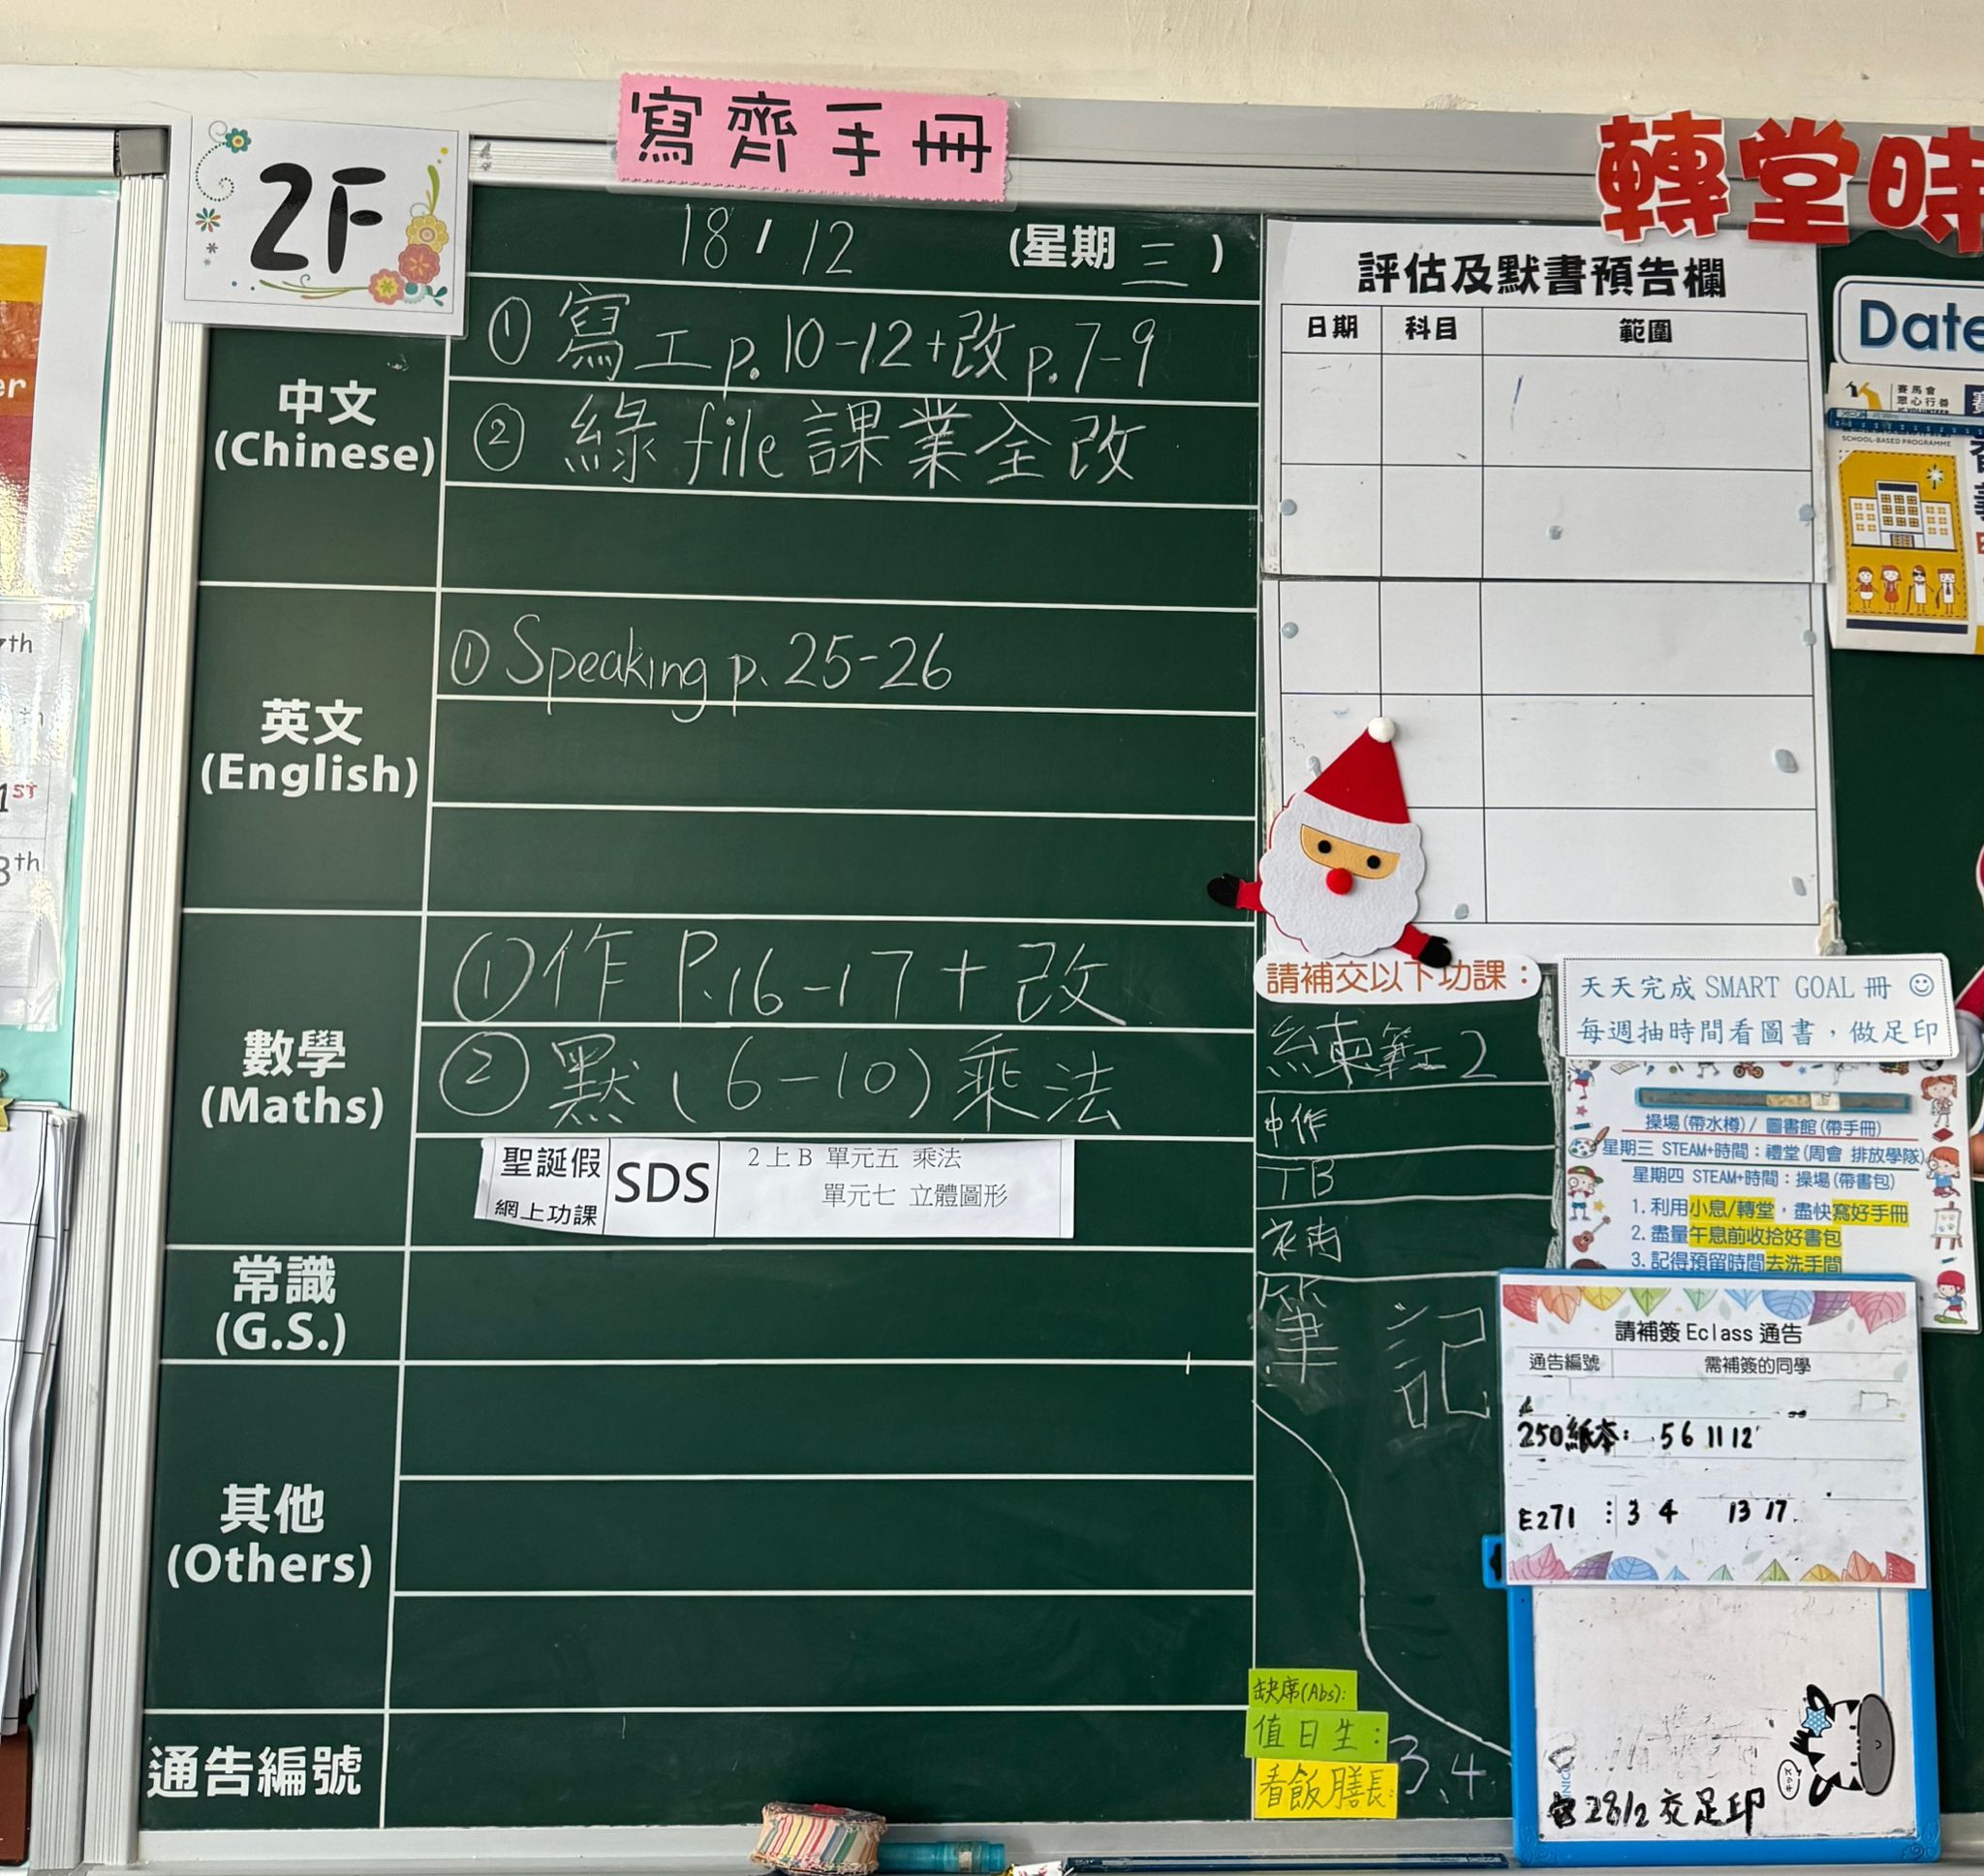 寫齊手冊
轉堂時
2F
18 / 12 (星期三)
中文
(Chinese)
① 寫工p.10-12+改p.7-9
② 綠file課業全改
英文
(English)
① Speaking p.25-26
數學
(Maths)
① 作 P.16-17 + 改
② 默(6-10)乘法
聖誕假
網上功課
SDS
2上B 單元五 乘法
單元七 立體圖形
常識
(G.S.)
其他
(Others)
通告編號
評估及默書預告欄
日期 科目 範圍
Date
賽馬會
眾心行善
SCHOOL-BASED PROGRAMME
請補交以下功課：
中作
TB
筆記
缺席(Abs):
值日生： 3、4
看飯膳長:
天天完成 SMART GOAL 冊 ☺
每週抽時間看圖書，做足印
操場(帶水樽)/ 圖書館(帶手冊)
星期三 STEAM+時間：禮堂(周會 排放學隊)
星期四 STEAM+時間：操場(帶書包)
1. 利用小息/轉堂，盡快寫好手冊
2. 盡量午息前收拾好書包
3. 記得預留時間去洗手間
請補簽 Eclass 通告
通告編號 需補簽的同學
250紙本： 5 6 11 12
E271 : 3 4 13 17
28/2 交足印
th
1ST
8th
er